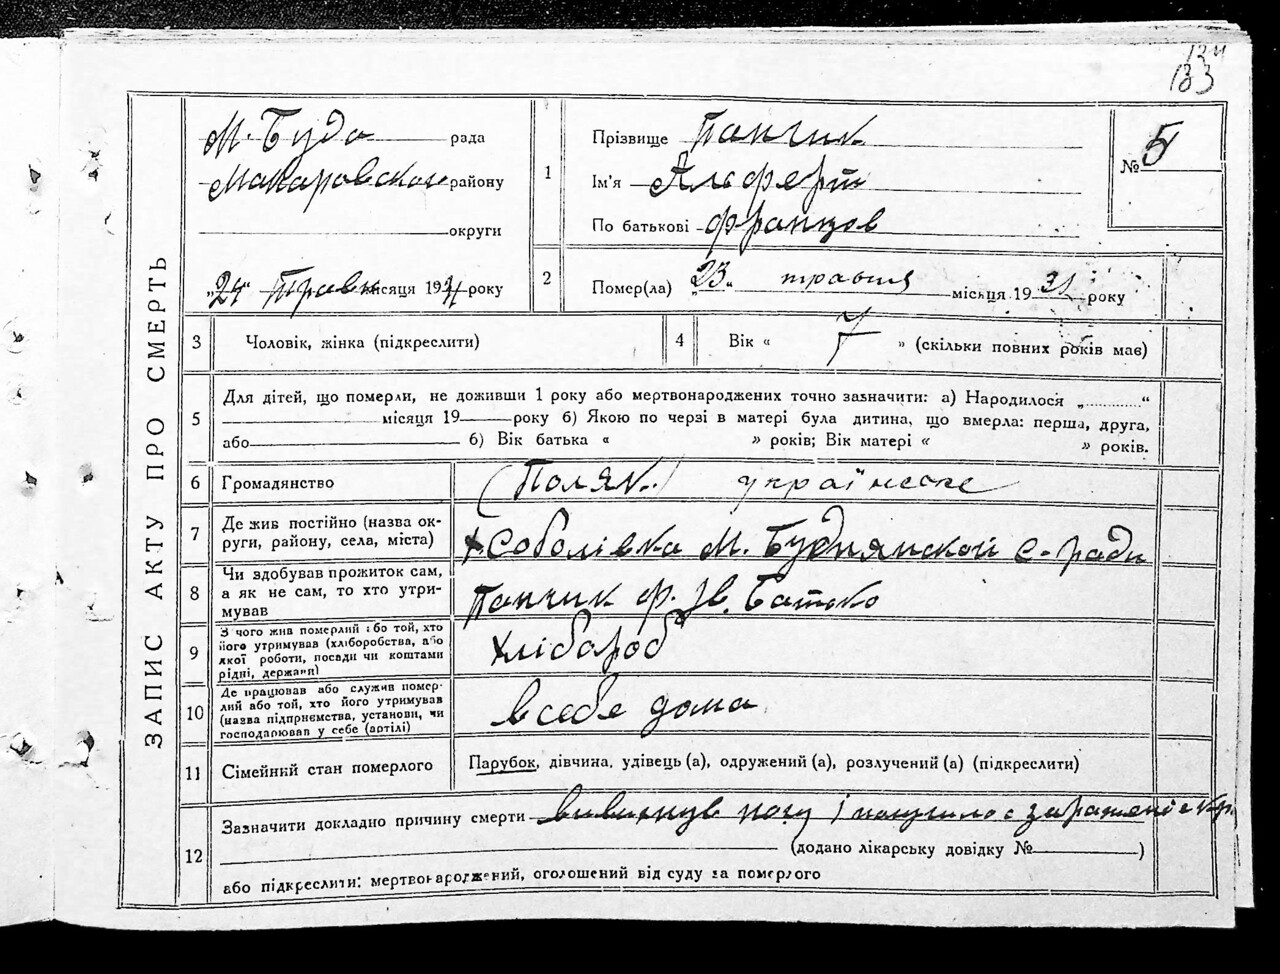 133
ЗАПИС АКТУ ПРО СМЕРТЬ
М. Буда рада
Макаровского району
округи
„24" Травн місяця 1931 року
1
Прізвище Панчик
Ім'я Альферт
По батькові Францов
№ 5
2
Помер(ла) „23" травня місяця 1931 року
3 Чоловік, жінка (підкреслити)
4 Вік « 7 » (скільки повних років мав)
5
Для дітей, що померли, не доживши 1 року або мертвонароджених точно зазначити: а) Народилося „............“
місяця 19 року б) Якою по черзі в матері була дитина, що вмерла: перша, друга,
або б) Вік батька « » років; Вік матері « » років.
6 Громадянство (Поляк) українське
7
Де жив постійно (назва ок-
руги, району, села, міста)
х. Соболівка М. Буднянской с-ради
8
Чи здобував прожиток сам,
а як не сам, то хто утри-
мував
Панчик Ф. Ів. Батько
9
З чого жив померлий або той, хто
його утримував (хліборобства, або
якої роботи, посади чи коштами
рідні, держави)
хлібороб
10
Де працював або служив помер-
лий або той, хто його утримував
(назва підприємства, установи, чи
господарював у себе (артілі)
в себе дома
11 Сімейний стан померлого
Парубок, дівчина, удівець (а), одружений (а), розлучений (а) (підкреслити)
12
Зазначити докладно причину смерти вивихнув ногу і получилос зараженіе кр.
(додано лікарську довідку № )
або підкреслити: мертвонароджений, оголошений від суду за померлого